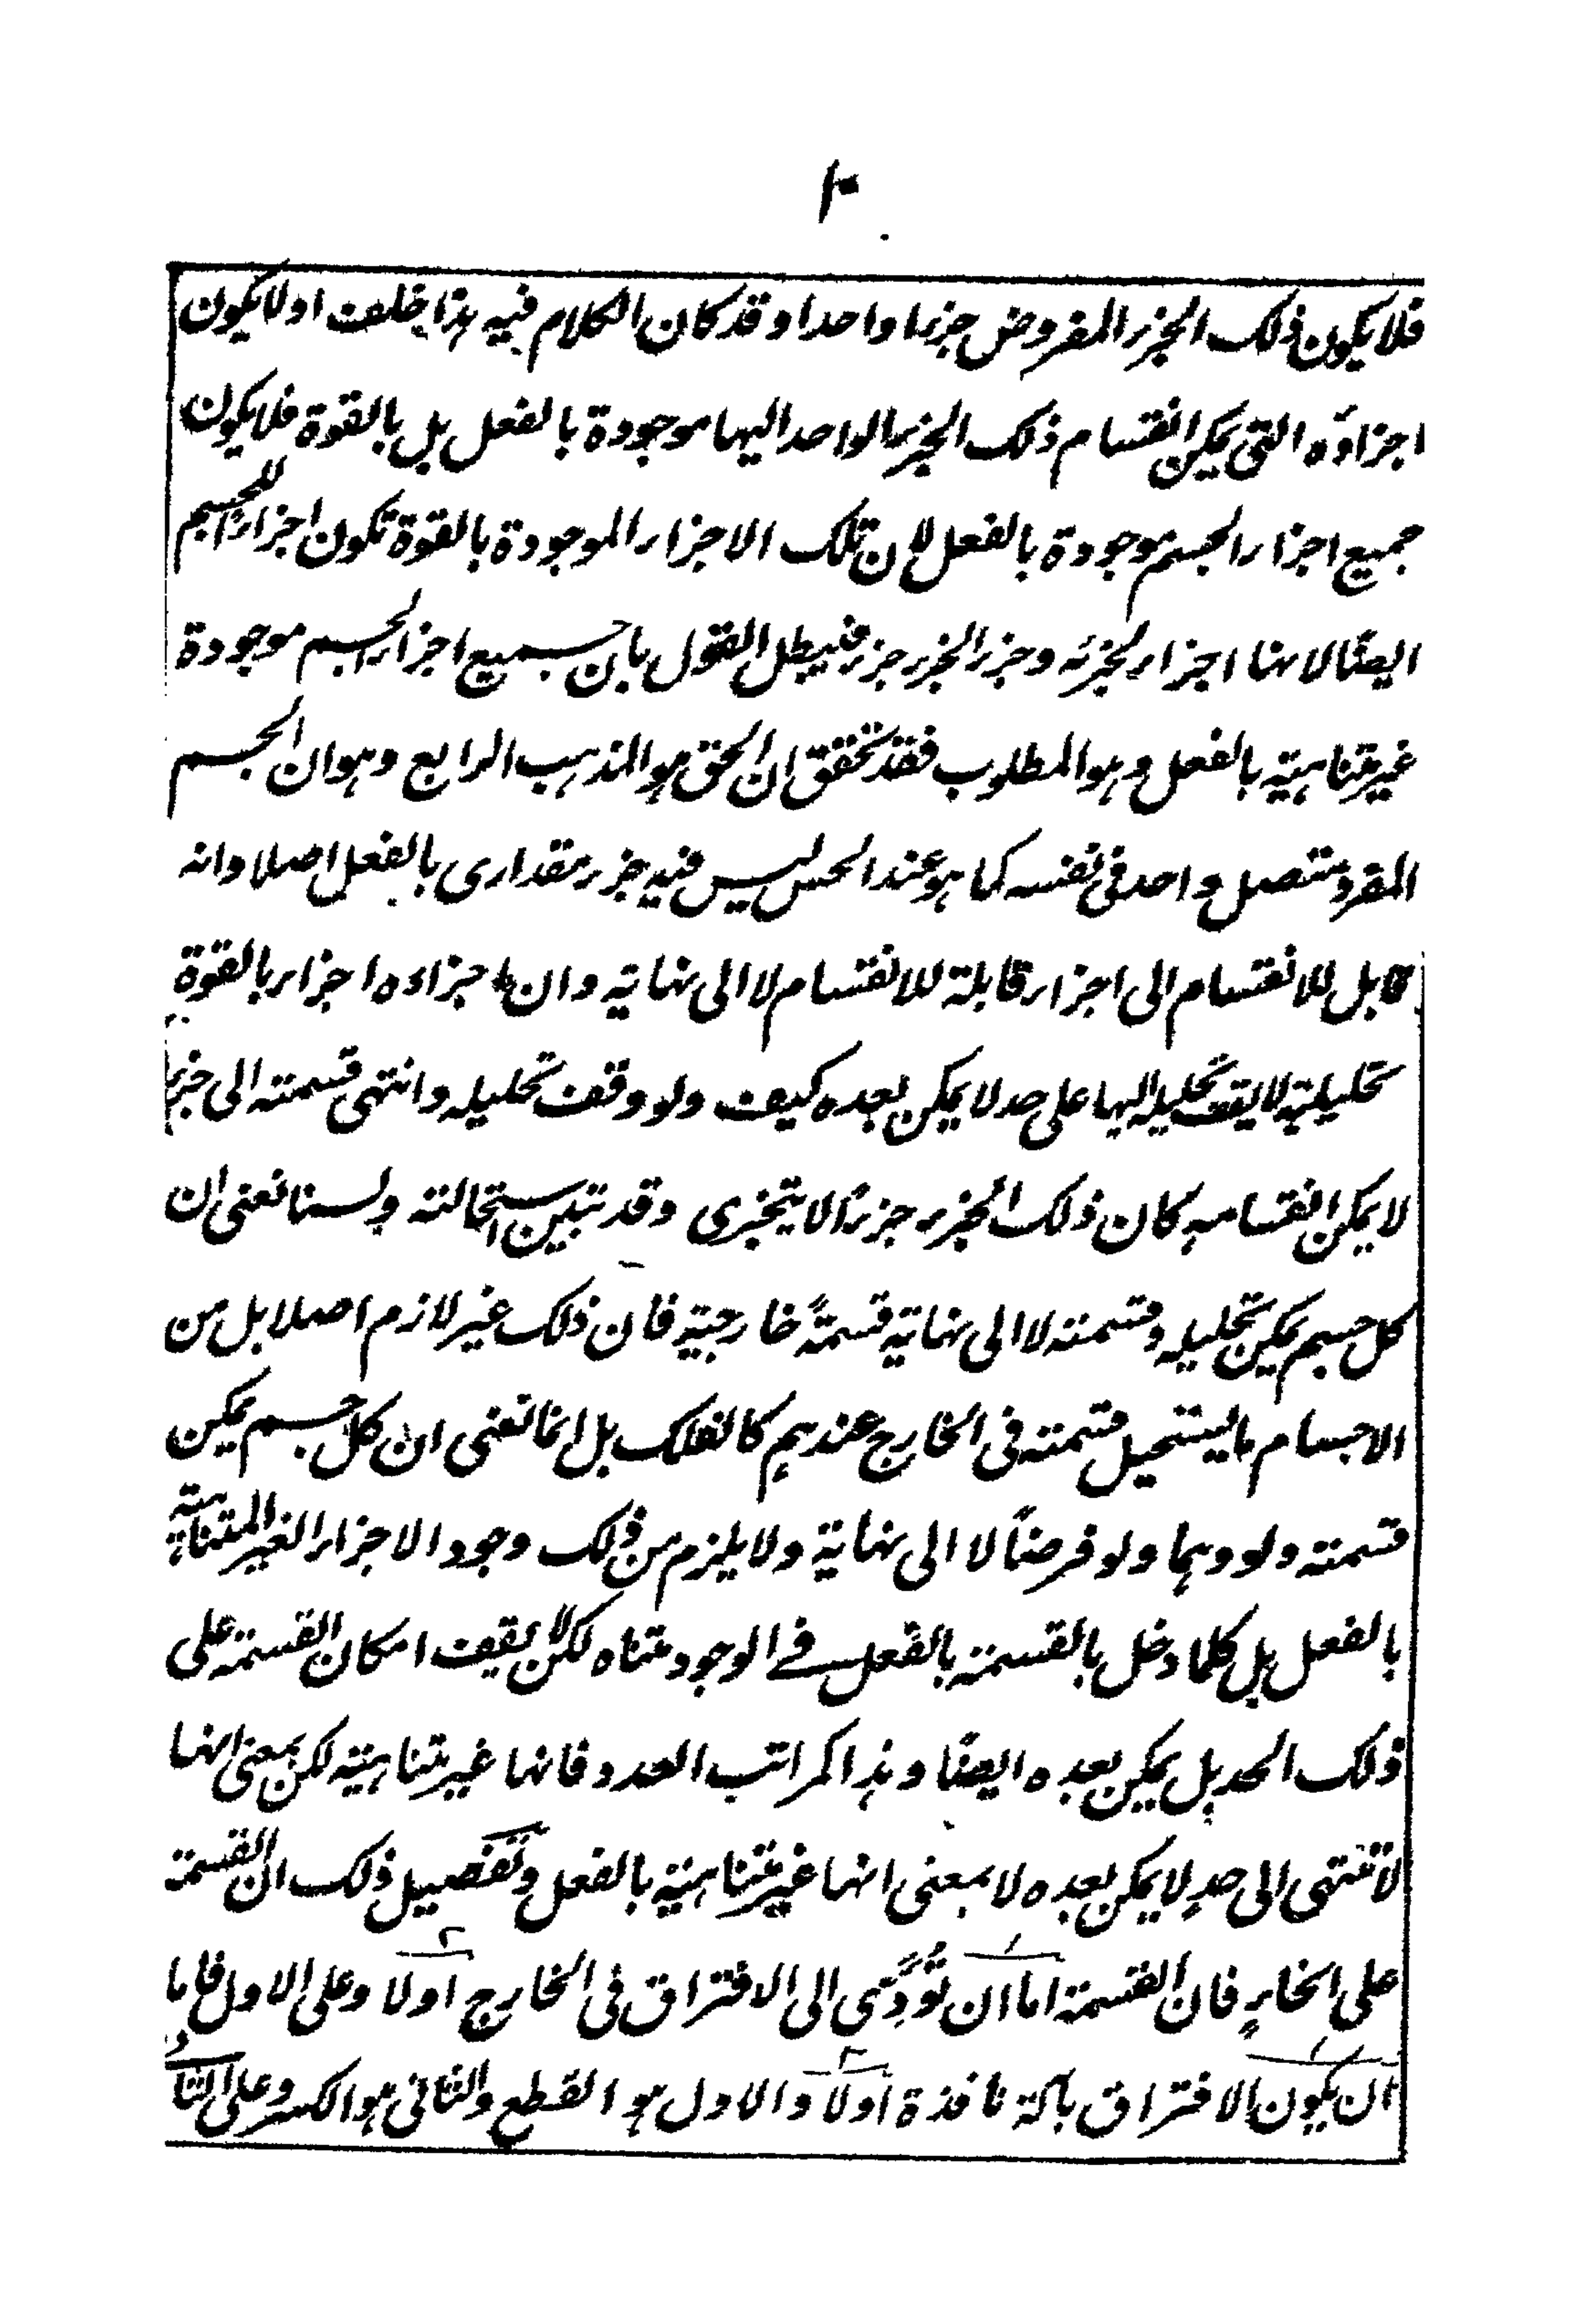 ١٠
فلا يكون ذلك الجزء المفروض جزءا واحدا وقد كان الكلام فيه هذا خلف اولا يكون
اجزاؤه التى يمكن انقسام ذلك الجزء الواحد اليها موجودة بالفعل بل بالقوة فلا يكون
جميع اجزاء الجسم موجودة بالفعل لان تلك الاجزاء الموجودة بالقوة تكون اجزاءً للجسم
ايضًا لانها اجزاء لجزئه وجزء الجزء جزء فيبطل القول بان جميع اجزاء الجسم موجودة
غير متناهية بالفعل وهو المطلوب فقد تحقق ان الحق هو المذهب الرابع وهو ان الجسم
المفرد متصل واحد فى نفسه كما هو عند الحس ليس فيه جزء مقدارى بالفعل اصلا وانه
قابل للانقسام الى اجزاء قابلة للانقسام لا الى نهاية وان اجزاءه اجزاء بالقوة
تحليلية لا يقف تحليله اليها على حد لا يمكن بعده كيف ولو وقف تحليله وانتهى قسمته الى جزء
لا يمكن انقسامه كان ذلك الجزء جزءًا لا يتجزى وقد تبين استحالته ولسنا نعنى ان
كل جسم يمكن تحليله وقسمته لا الى نهاية قسمةً خارجية فان ذلك غير لازم اصلا بل من
الاجسام ما يستحيل قسمته فى الخارج عندهم كالفلك بل انما نعنى ان كل جسم يمكن
قسمته ولو وهما ولو فرضاً لا الى نهاية ولا يلزم من ذلك وجود الاجزاء الغير المتناهية
بالفعل بل كلما دخل بالقسمة بالفعل فى الوجود متناه لكن لا يقف امكان القسمة على
ذلك الحد بل يمكن بعده ايضًا وهذا كمراتب العدد فانها غير متناهية لكن بمعنى انها
لا تنتهى الى حدٍ لا يمكن بعده لا بمعنى انها غير متناهية بالفعل وتفصيل ذلك ان القسمة
على انحاءٍ فان القسمة اما ان تُؤدِّى الى الافتراق فى الخارج اولا وعلى الاول فاما
ان يكون الافتراق بآلة نافذة اولا والاول هو القطع والثانى هو الكسر وعلى الثا